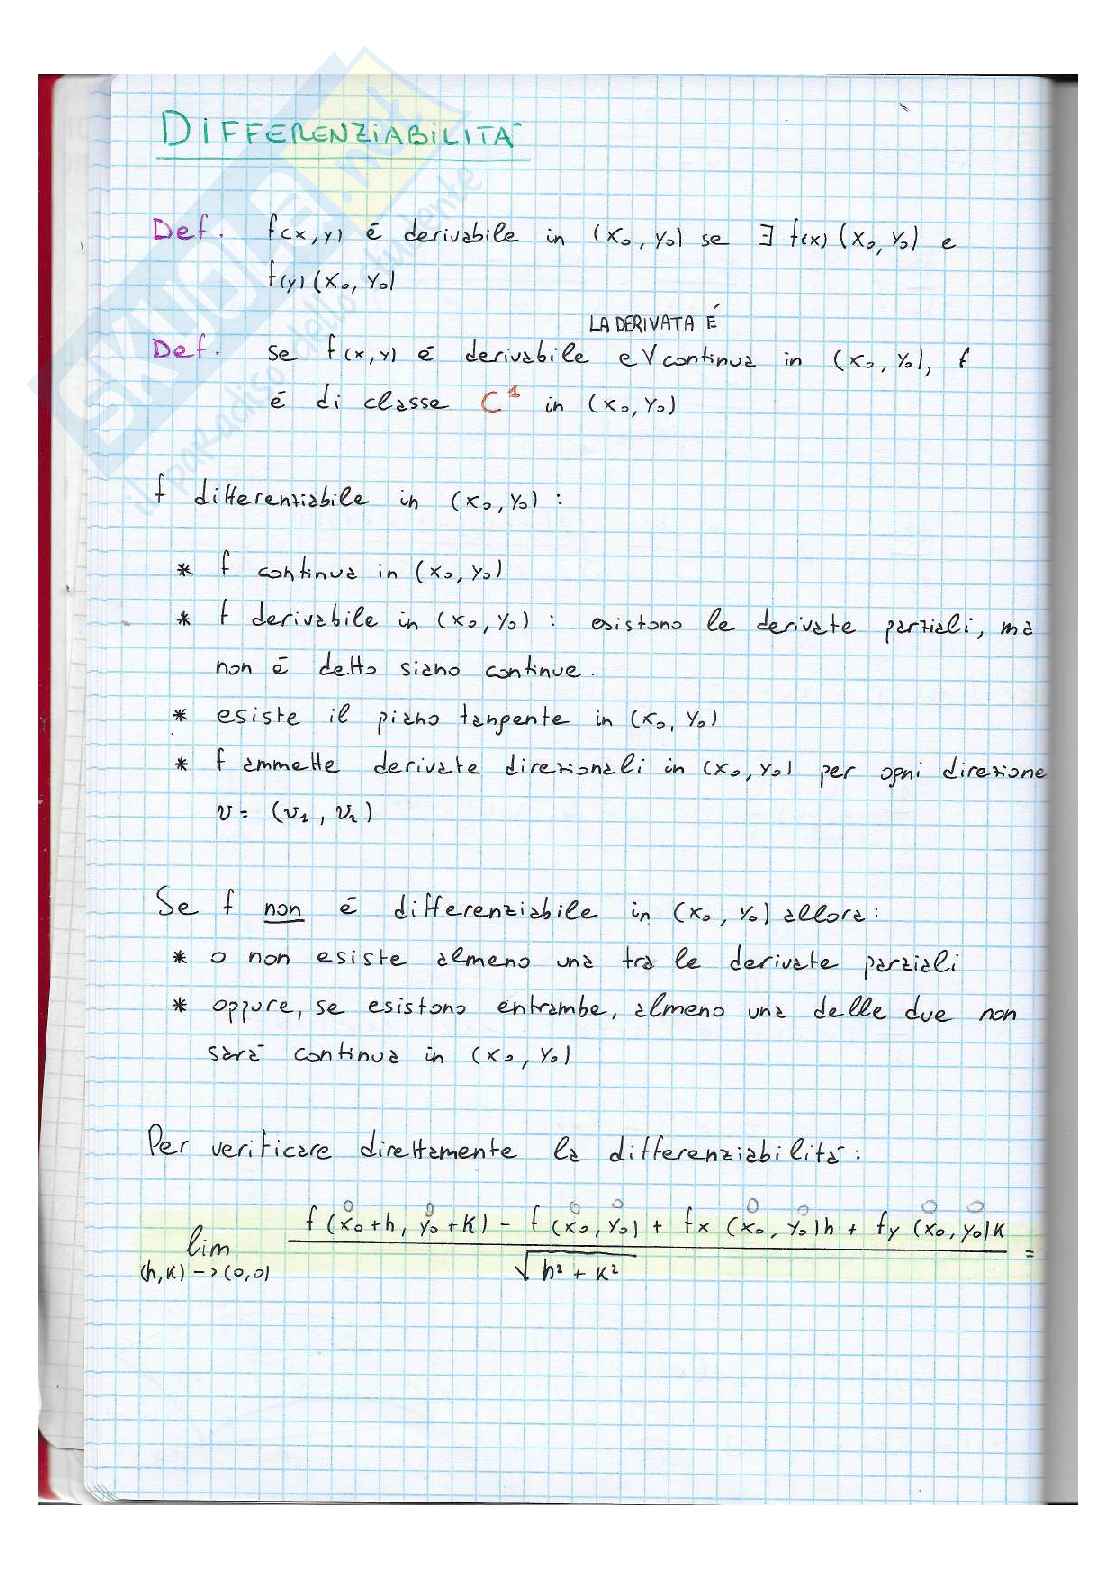 DIFFERENZIABILITÀ
Def. f(x,y) è derivabile in (x₀,y₀) se ∃ f(x)(x₀,y₀) e
f(y)(x₀,y₀)
LA DERIVATA È
Def. se f(x,y) è derivabile e V continua in (x₀,y₀), f
è di classe C¹ in (x₀,y₀)
f differenziabile in (x₀,y₀):
* f continua in (x₀,y₀)
* f derivabile in (x₀,y₀): esistono le derivate parziali, ma
non è detto siano continue.
* esiste il piano tangente in (x₀,y₀)
* f ammette derivate direzionali in (x₀,y₀) per ogni direzione
v = (v₁, v₂)
Se f non è differenziabile in (x₀,y₀) allora:
* o non esiste almeno una tra le derivate parziali
* oppure, se esistono entrambe, almeno una delle due non
sarà continua in (x₀,y₀)
Per verificare direttamente la differenziabilità:
0 0 0 0 0 0 0 0
f(x₀+h, y₀+k) - f(x₀,y₀) + fx(x₀,y₀)h + fy(x₀,y₀)k
lim =
(h,k)->(0,0) √h²+k²
SKUOLA.net
il paradiso dello studente